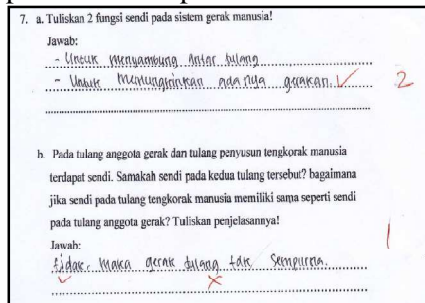 7. a. Tuliskan 2 fungsi sendi pada sistem gerak manusia!
Jawab:
- Untuk menyambung antar tulang
- Untuk memungkinkan adanya gerakan. ✓ 2
b. Pada tulang anggota gerak dan tulang penyusun tengkorak manusia
terdapat sendi. Samakah sendi pada kedua tulang tersebut? bagaimana
jika sendi pada tulang tengkorak manusia memiliki sama seperti sendi
pada tulang anggota gerak? Tuliskan penjelasannya!
1
Jawab:
tidak. Maka gerak tulang tdk Sempurna.
✓ ✗